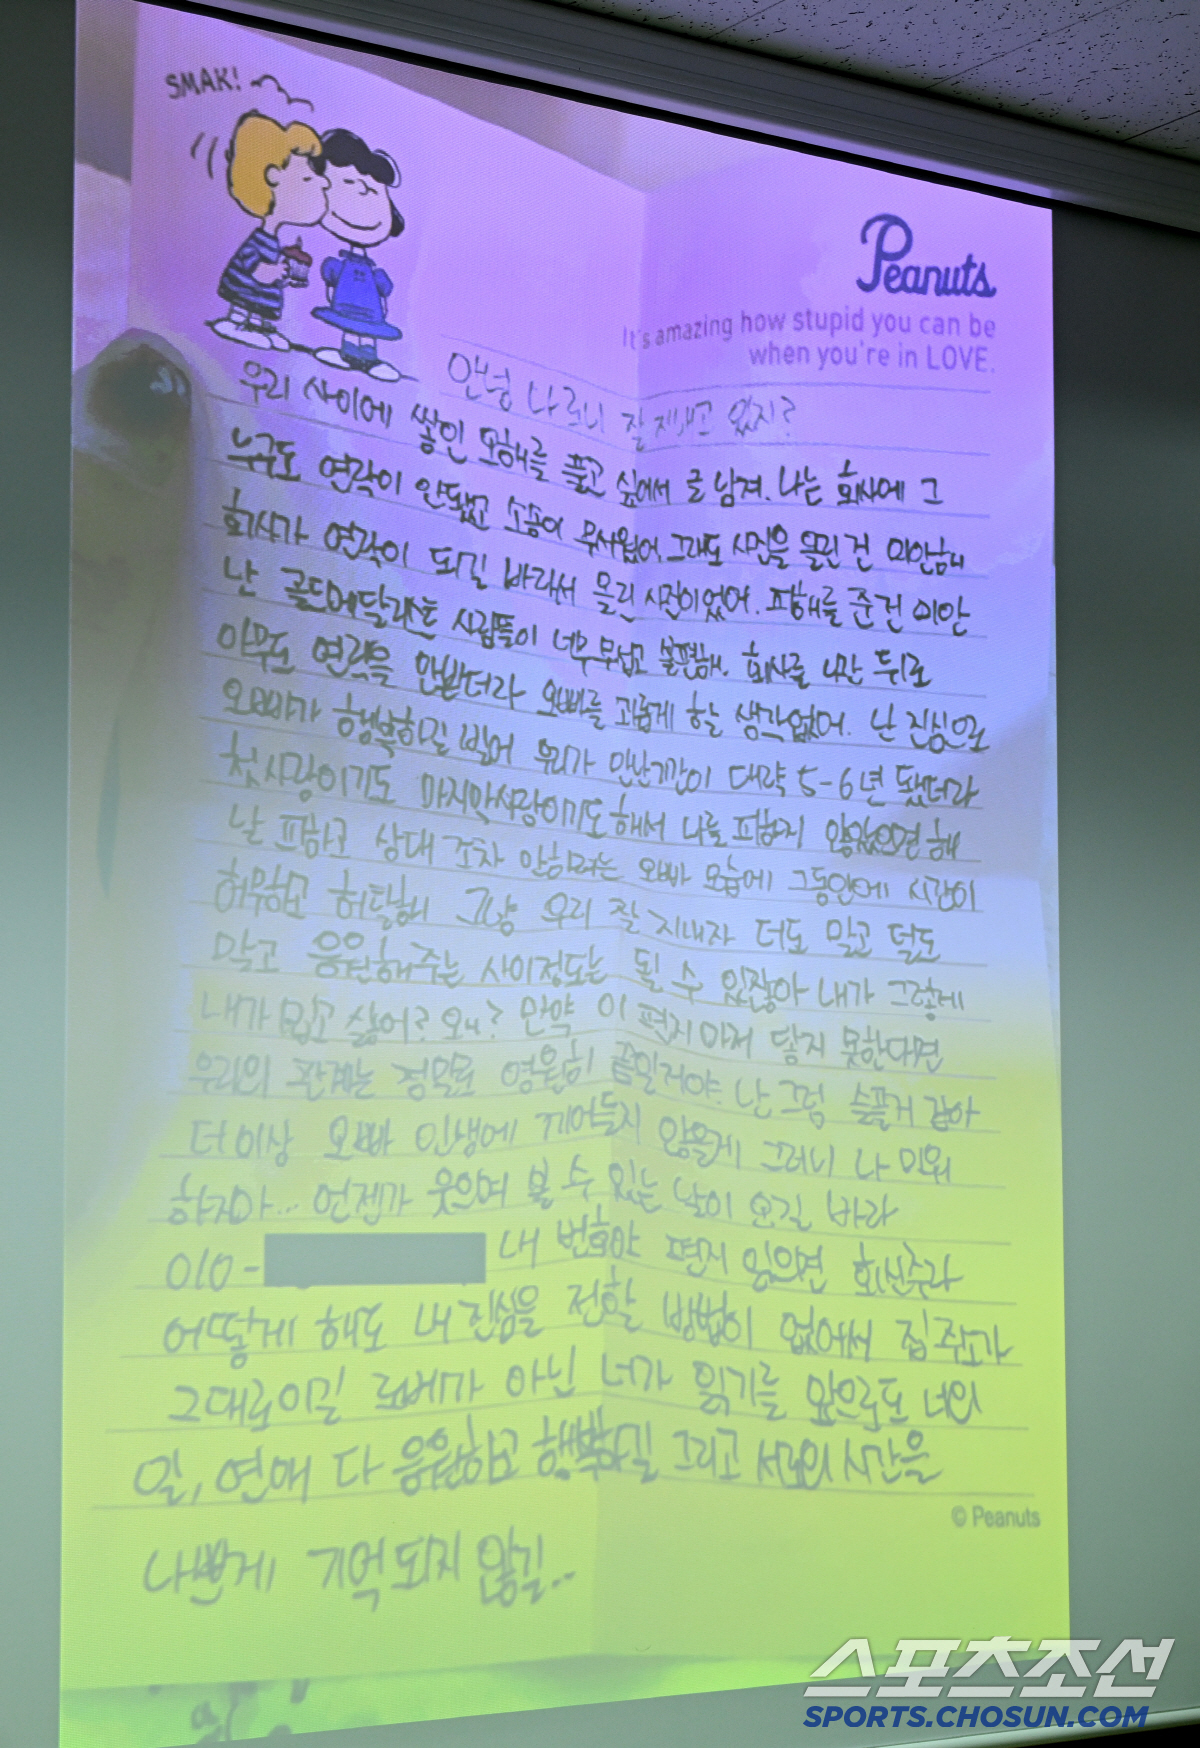 SMAK!
Peanuts
It's amazing how stupid you can be
when you're in LOVE.
안녕 나 잘 지내고 있지?
우리 사이에 쌓인 오해를 풀고 싶어서 글 남겨. 나는 회사에 그
누구도 연락이 안됐고 소송이 무서웠어. 그래도 사진을 올린 건 미안해
회사가 연락이 되길 바라서 올린 사진이었어. 피해를 준건 미안
난 골드메달리스트 사람들이 너무 무섭고 불편해. 회사를 뒤로
아무도 연락을 안받더라 오빠를 괴롭게 할 생각없어. 난 진심으로
오빠가 행복하길 빌어 우리가 만난기간이 대략 5-6년 됐더라
첫사랑이기도 마지막사랑이기도 해서 나를 피하지 않았으면 해
날 피하고 상대조차 안하려는 오빠 모습에 그동안에 시간이
허무하고 허탈해 그냥 우리 잘 지내자 더도 말고 덜도
말고 응원해주는 사이정도는 될 수 있잖아 내가 그렇게
내가 밉고 싫어? 왜? 만약 이 편지마저 닿지 못한다면
우리의 관계는 정말로 영원히 끝일거야. 난 그럼 슬플거 같아
더이상 오빠 인생에 끼어들지 않을게 그러니 나 미워
하지마... 언젠가 웃으며 볼 수 있는 날이 오길 바라
010- 내 번호야 편지 읽으면 회신주라
어떻게 해도 내 진심을 전할 방법이 없어서 집 주소가
그대로이길 로베가 아닌 너가 읽기를 앞으로도 너의
일, 연애 다 응원하고 행복하길 그리고 서로의 시간을
나쁘게 기억되지 않길..
© Peanuts
스포츠조선
SPORTS.CHOSUN.COM